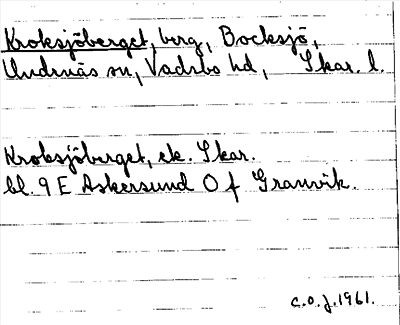 Kroksjöberget, berg, Bocksjö,
Undenäs sn, Vadsbo hd, Skar. l.
Kroksjöberget, ek. Skar.
bl. 9 E Askersund O f Granvik.
C.O.J. 1961.